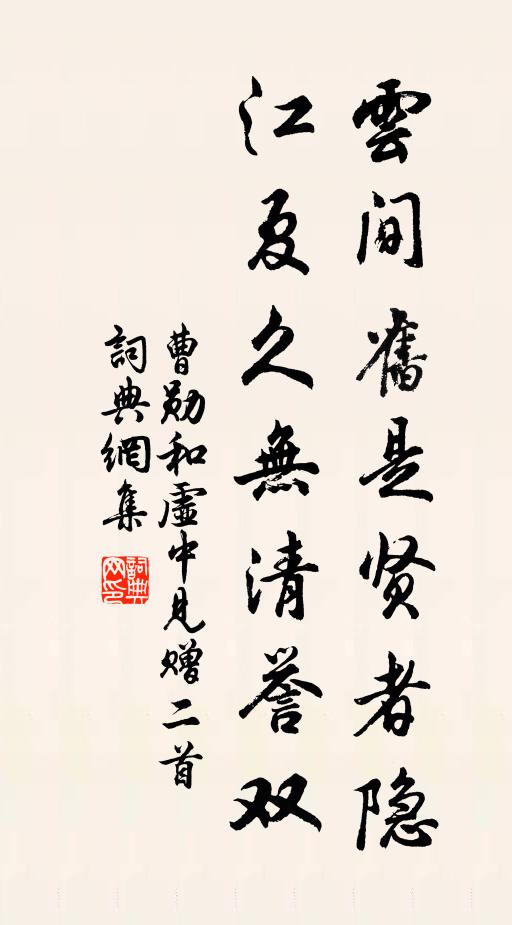 雲间舊是贤者隐
江夏久無清誉双
曹勋和虚中见赠二首
詞典網集
詞典网印